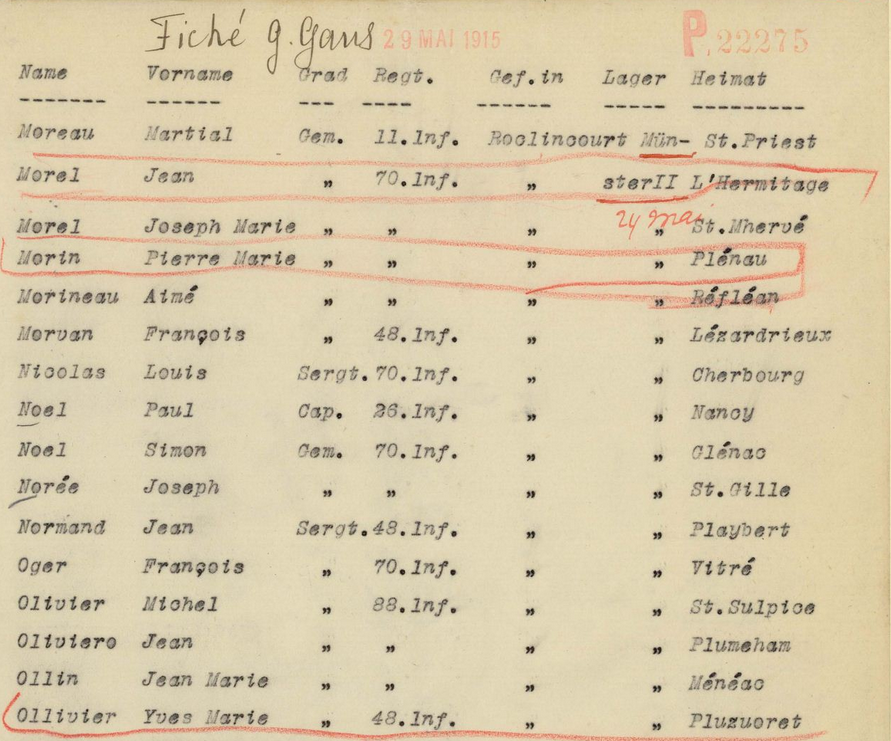 Fiché G. Gans 29 MAI 1915 P. 22275
Name Vorname Grad Regt. Gef.in Lager Heimat
------- ------ --- ---- ------ ----- ---------
Moreau Martial Gem. 11.Inf. Roclincourt Mün- St.Priest
Morel Jean " 70.Inf. " sterII L'Hermitage
24 mai
Morel Joseph Marie " " " " St.Mhervé
Morin Pierre Marie " " " " Plénau
Morineau Aimé " " " " Réfléan
Morvan François " 48.Inf. " " Lézardrieux
Nicolas Louis Sergt. 70.Inf. " " Cherbourg
Noel Paul Cap. 26.Inf. " " Nancy
Noel Simon Gem. 70.Inf. " " Glénac
Norée Joseph " " " " St.Gille
Normand Jean Sergt. 48.Inf. " " Playbert
Oger François " 70.Inf. " " Vitré
Olivier Michel " 88.Inf. " " St.Sulpice
Oliviero Jean " " " " Plumeham
Ollin Jean Marie " " " " Ménéac
Ollivier Yves Marie " 48.Inf. " " Pluzuoret